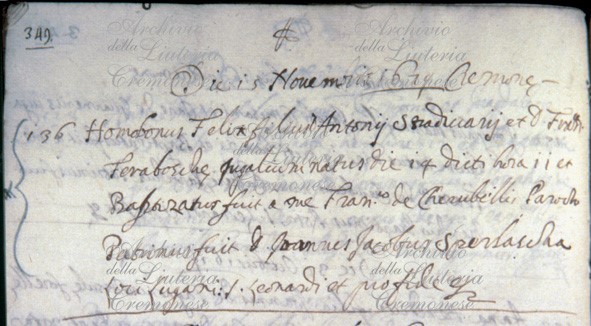 349.
Die 15 Novembris 1679 Cremonę
136 Homobonus Felix filius Antonij Stradiuarij et D. Fran.
Feraboschę jugalium natus die 14 dicti hora 11 et
Baptizatus fuit a me Fran.co de Cherubellis Parocho
Patrinus fuit D. Joannes Jacobus Sperlascha
loci Lugani
Leonardi et pro fide
Archivio
della
Liuteria
Cremonese
Archivio
della
Liuteria
Cremonese
della
Liuteria
Cremonese
Archivio
della
Liuteria
Cremonese